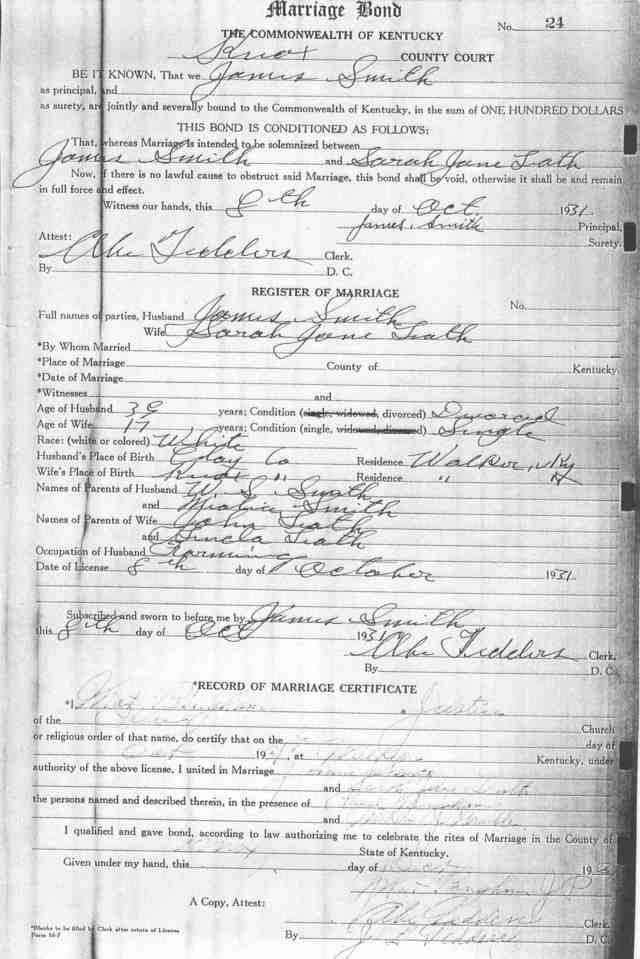 Marriage Bond
No. 24
THE COMMONWEALTH OF KENTUCKY
Knox COUNTY COURT
BE IT KNOWN, That we James Smith
as principal, and
as surety, are jointly and severally bound to the Commonwealth of Kentucky, in the sum of ONE HUNDRED DOLLARS
THIS BOND IS CONDITIONED AS FOLLOWS:
That, whereas Marriage is intended to be solemnized between
James Smith and Sarah Jane
Now, if there is no lawful cause to obstruct said Marriage, this bond shall be void, otherwise it shall be and remain
in full force and effect.
Witness our hands, this 8th day of Oct. 1931.
James Smith Principal,
Surety.
Attest:
Clerk.
By D. C.
REGISTER OF MARRIAGE
No.
Full names of parties, Husband James Smith
Wife Sarah Jane
*By Whom Married
*Place of Marriage County of Kentucky.
*Date of Marriage
*Witnesses and
Age of Husband 39 years; Condition (single, widowed, divorced) Divorced
Age of Wife 17 years; Condition (single, widowed, divorced) Single
Race: (white or colored) White
Husband's Place of Birth Clay Co Residence Walker, Ky
Wife's Place of Birth Knox " Residence " "
Names of Parents of Husband W. S. Smith
and Smith
Names of Parents of Wife John
and
Occupation of Husband Farming
Date of License 8th day of October 1931.
Subscribed and sworn to before me by James Smith
this 8th day of Oct 1931
Clerk.
By D. C.
*RECORD OF MARRIAGE CERTIFICATE
*I a Justice
of the Church
or religious order of that name, do certify that on the day of
Oct 19 , at Kentucky, under
authority of the above license, I united in Marriage
and
the persons named and described therein, in the presence of
and
I qualified and gave bond, according to law authorizing me to celebrate the rites of Marriage in the County of
State of Kentucky.
Given under my hand, this day of 193
J. P.
A Copy, Attest:
Clerk.
By D. C.
*Blanks to be filled by Clerk after return of License